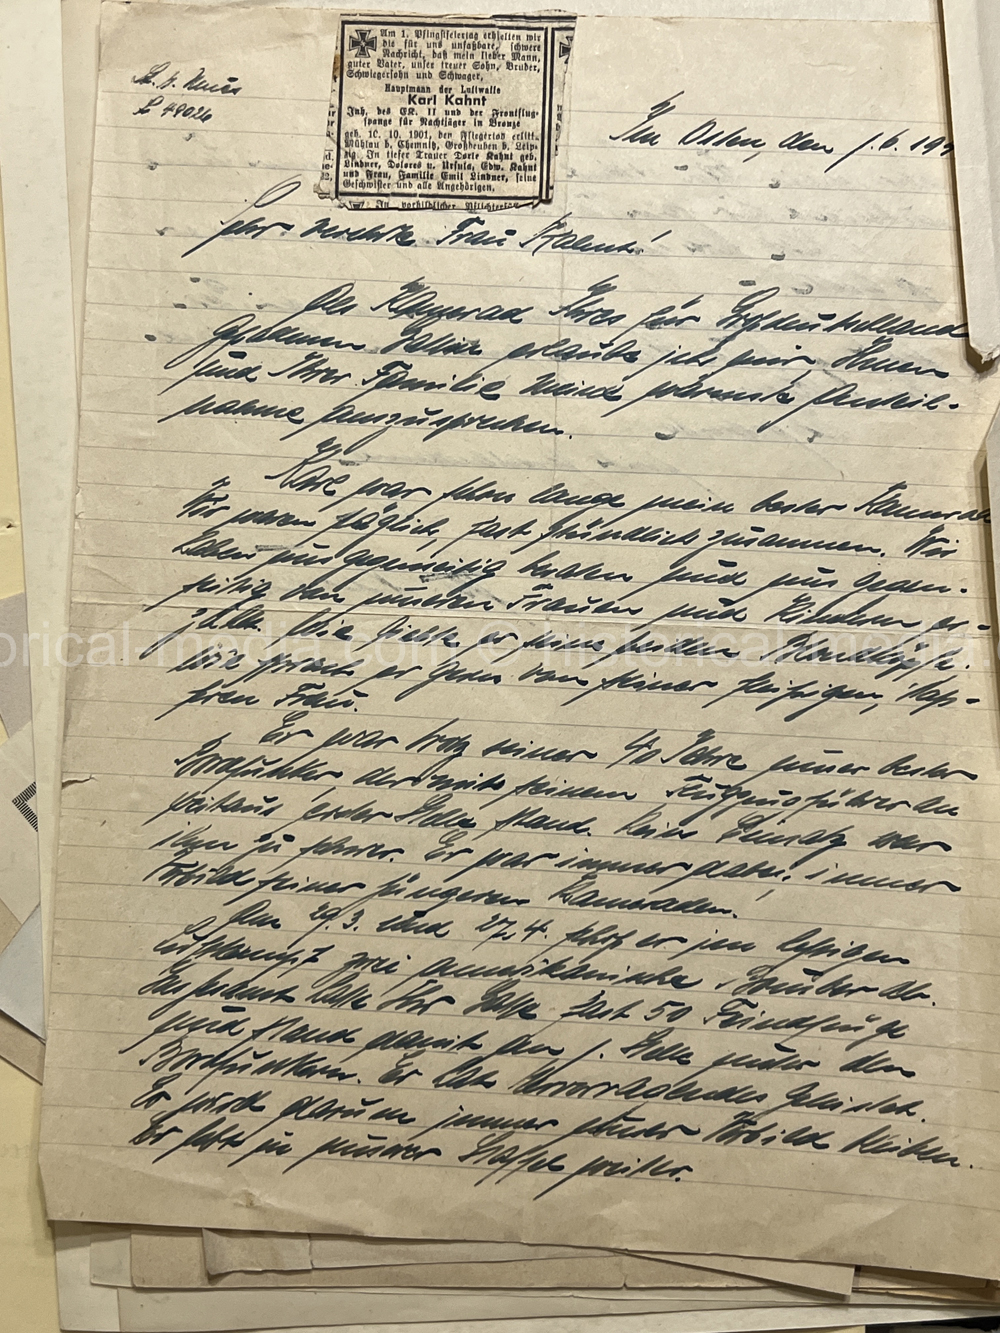 Am 1. Pfingstfeiertag erhielten wir
die für uns unfaßbare, schwere
Nachricht, daß mein lieber Mann,
guter Vater, unser treuer Sohn, Bruder,
Schwiegersohn und Schwager,
Hauptmann der Luftwaffe
Karl Kahnt
Inh. des EK. II und der Frontflug-
spange für Nachtjäger in Bronze
geb. 10. 10. 1901, den Fliegertod erlitt.
Mühlau b. Chemnitz, Großdeuben b. Leip-
zig. In tiefer Trauer Dorle Kahnt geb.
Lindner, Dolores u. Ursula, Edw. Kahnt
und Frau, Familie Emil Lindner, seine
Geschwister und alle Angehörigen.
In vorbildlicher Pflichterfüll
L 49026
Im Osten, den 1.6.19
Sehr verehrte Frau Kahnt!
Als Kamerad Ihres für Großdeutschland
gefallenen erlaube ich mir, Ihnen
und Ihrer Familie meine wärmste Anteil-
nahme auszusprechen.
Karl war schon lange mein bester Kamerad
Wir waren täglich, fast stündlich zusammen. Wir
haben uns gegenseitig und uns gegen-
seitig von unseren Frauen und Kindern er-
zählt. Wie er an seinen
sprach er gern von seiner fleißigen, tap-
feren Frau.
Er war trotz seiner 40 Jahre unser bester
Bordfunker, der mit seinem Flugzeugführer an
weitaus erster Stelle stand. Kein Einsatz war
ihm zu schwer. Er war immer dabei, immer
Vorbild seiner jüngeren Kameraden.
Am 29.3. und 27.4. schoß er im
Luftkampf zwei amerikanische Bomber ab.
Insgesamt hatte Ihr fast 50 Feindflüge
und stand damit an 1. Stelle unter den
Bordfunkern. Er hat Hervorragendes geleistet.
Er wird darum immer unser Vorbild bleiben.
Er lebt in unserer Staffel weiter.
historical-media.com © historical-media.